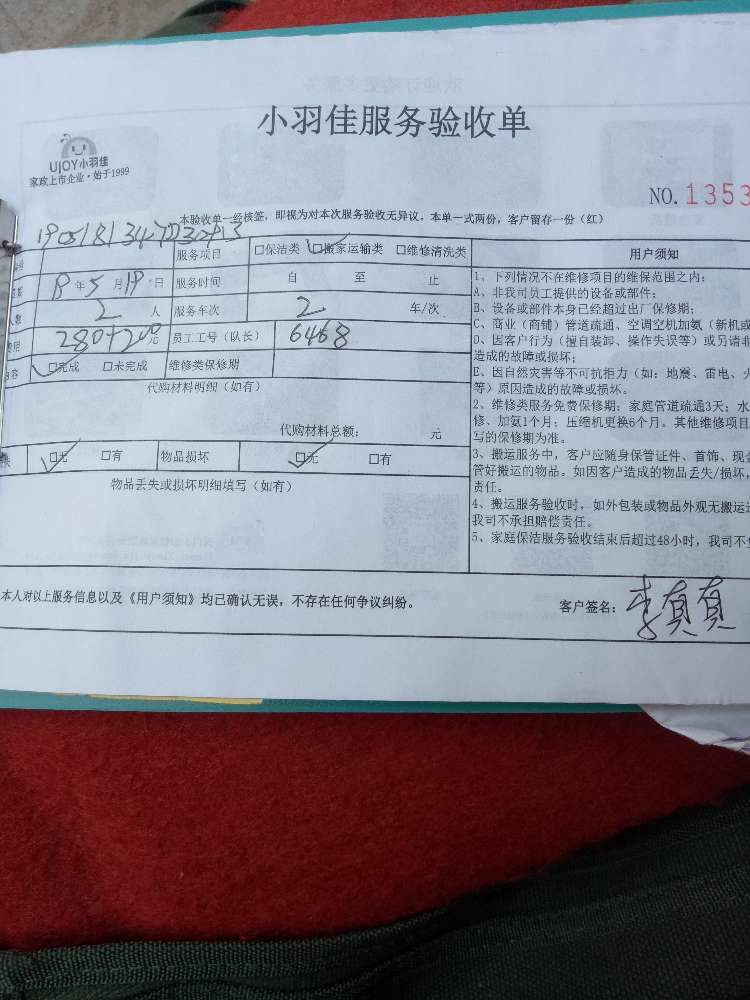 小羽佳服务验收单
UJOY小羽佳
家政上市企业·始于1999
NO.1353
本验收单一经核签，即视为对本次服务验收无异议。本单一式两份，客户留存一份（红）
服务项目 □保洁类 □搬家运输类 □维修清洗类 用户须知
年5月19日 服务时间 自 至 止
2 人 服务车次 2 车/次
280+200元 员工工号（队长） 6468
□完成 □未完成 维修类保修期
代购材料明细（如有）
代购材料总额： 元
□无 □有 物品损坏 □无 □有
物品丢失或损坏明细填写（如有）
1、下列情况不在维修项目的维保范围之内：
A、非我司员工提供的设备或部件；
B、设备或部件本身已经超过出厂保修期；
C、商业（商铺）管道疏通、空调空机加氨（新机或
D、因客户行为（擅自装卸、操作失误等）或另请非
造成的故障或损坏；
E、因自然灾害等不可抗拒力（如：地震、雷电、火
等）原因造成的故障或损坏。
2、维修类服务免费保修期：家庭管道疏通3天；水
修、加氨1个月；压缩机更换6个月。其他维修项目
写的保修期为准。
3、搬运服务中，客户应随身保管证件、首饰、现金
管好搬运的物品。如因客户造成的物品丢失/损坏，
责任。
4、搬运服务验收时，如外包装或物品外观无搬运
我司不承担赔偿责任。
5、家庭保洁服务验收结束后超过48小时，我司不
本人对以上服务信息以及《用户须知》均已确认无误，不存在任何争议纠纷。 客户签名：李真真